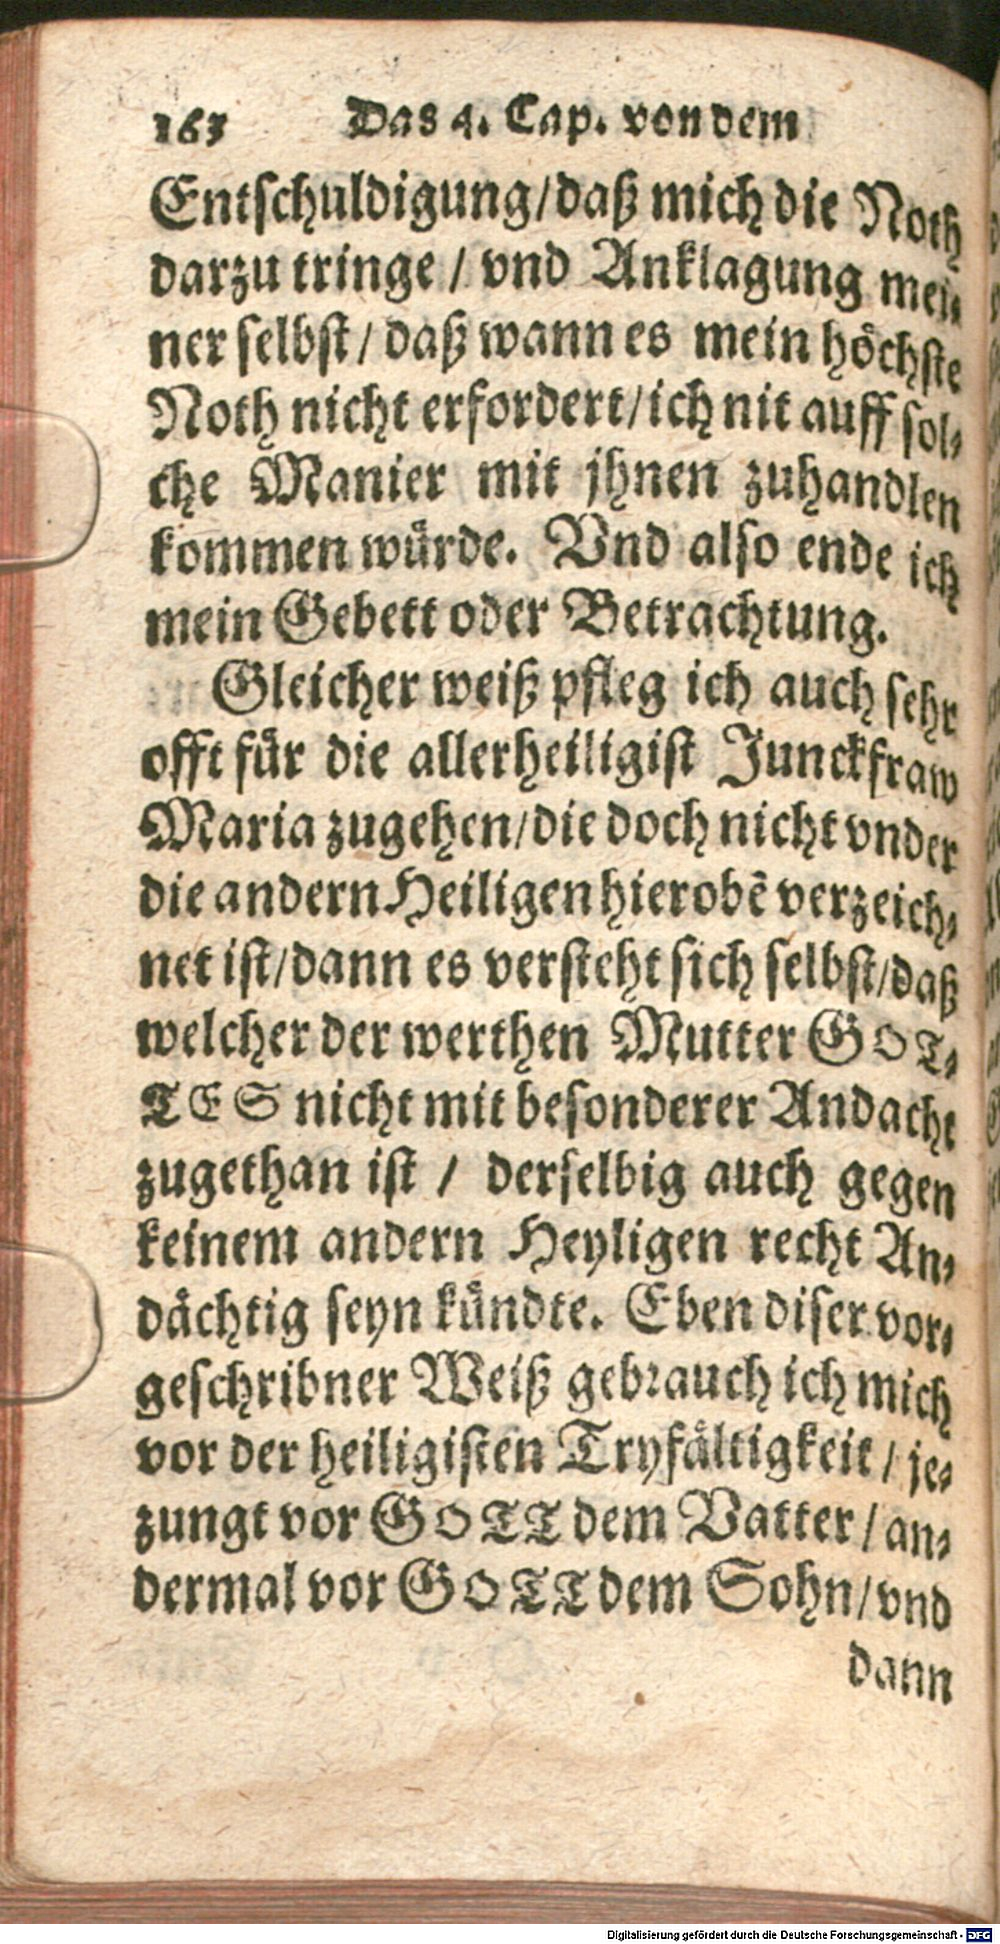 163 Das 4. Cap. von dem
Entschuldigung/daß mich die Noth
darzu tringe / vnd Anklagung mei-
ner selbst/ daß wann es mein höchste
Noth nicht erfordert/ich nit auff sol-
che Manier mit jhnen zuhandlen
kommen würde. Vnd also ende ich
mein Gebett oder Betrachtung.
Gleicher weiß pfleg ich auch sehr
offt für die allerheiligist Junckfraw
Maria zugehen/die doch nicht vnder
die andern Heiligen hierobẽ verzeich-
net ist/dann es versteht sich selbst/daß
welcher der werthen Mutter GOT-
TES nicht mit besonderer Andacht
zugethan ist / derselbig auch gegen
keinem andern Heyligen recht An-
dächtig seyn kündte. Eben diser vor-
geschribner Weiß gebrauch ich mich
vor der heiligisten Tryfältigkeit / je-
zungt vor GOTT dem Vatter / an-
dermal vor GOTT dem Sohn/vnd
dann
Digitalisierung gefördert durch die Deutsche Forschungsgemeinschaft - DFG